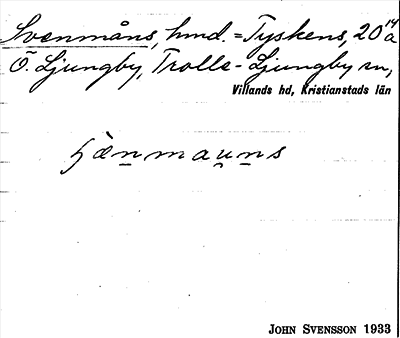 Svenmåns, hmd. = Tyskens, 20¹⁴a
Ö. Ljungby, Trolle-Ljungby sn,
Villands hd, Kristianstads län
JOHN SVENSSON 1933